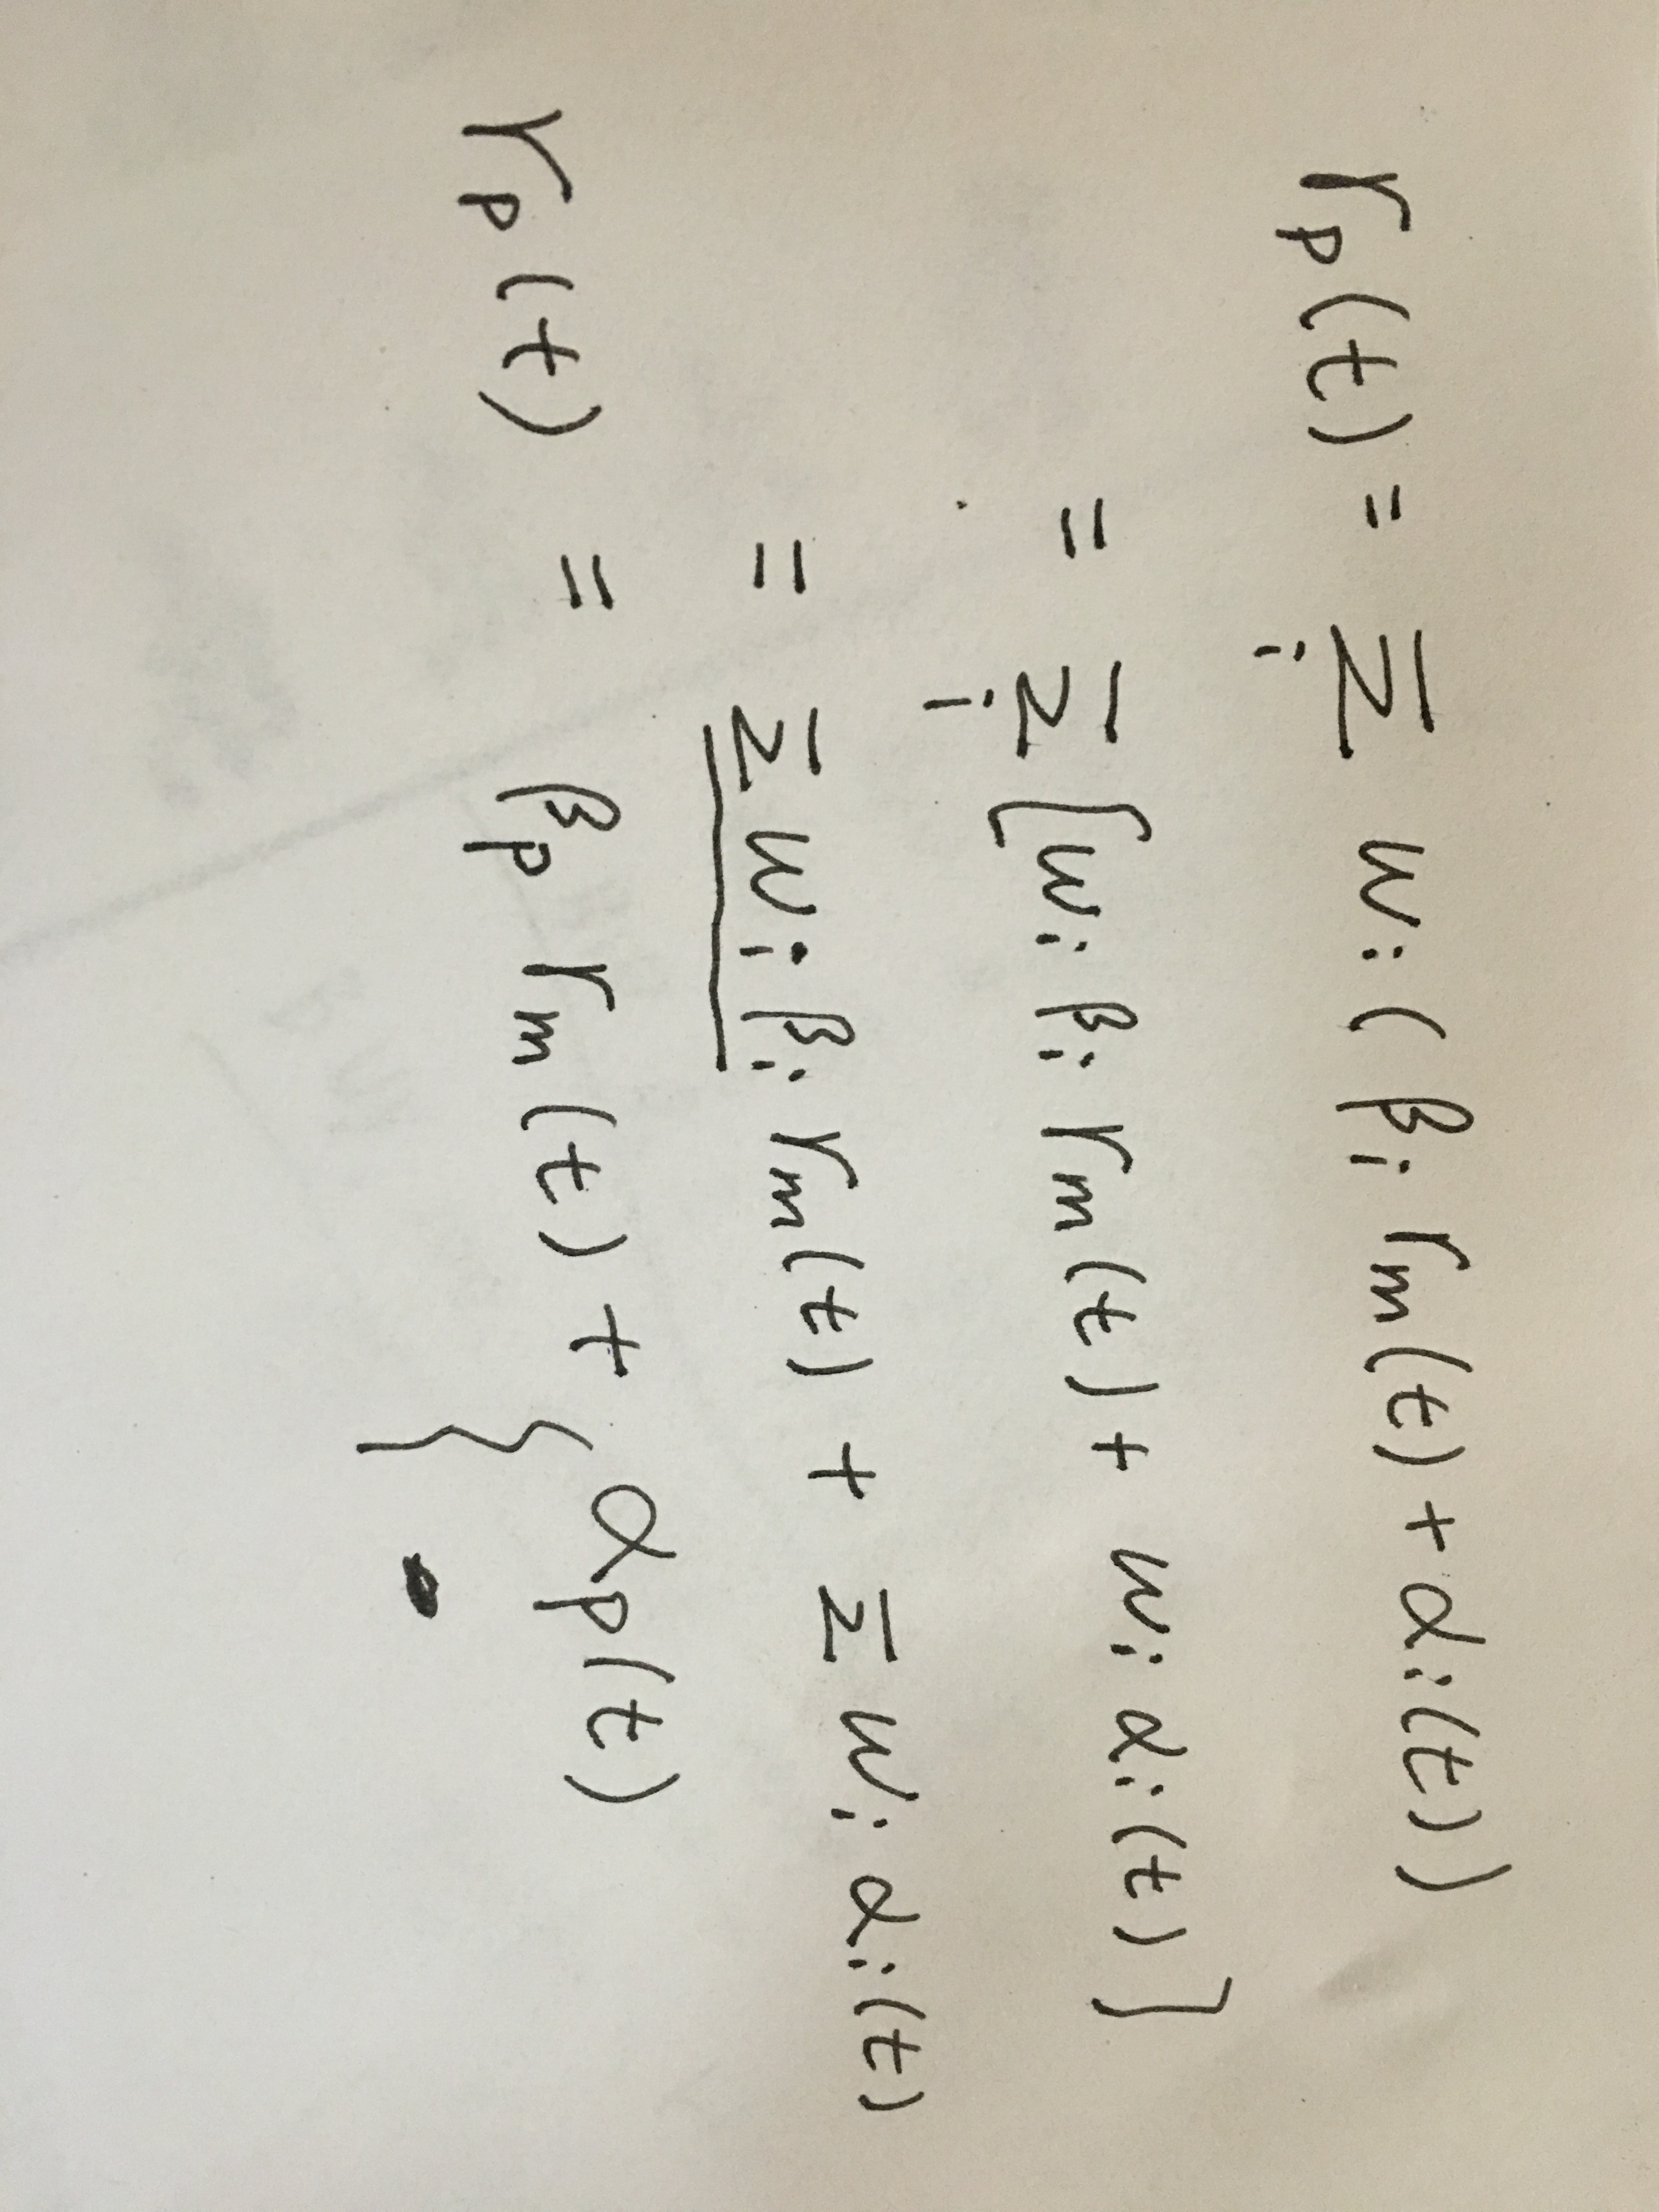 rₚ(t) = Σᵢ wᵢ (βᵢ rₘ(t) + αᵢ(t))
= Σᵢ [wᵢ βᵢ rₘ(t) + wᵢ αᵢ(t)]
= Σ wᵢ βᵢ rₘ(t) + Σ wᵢ αᵢ(t)
rₚ(t) = βₚ rₘ(t) + αₚ(t)